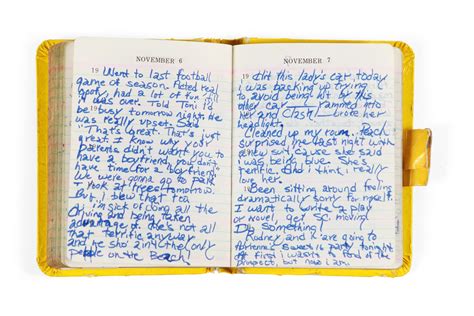 NOVEMBER 6
19 Went to last football
game of season. Acted real
spotty, had a lot of fun till
it was over. Told Toni I'd
be busy tomorrow night. He
was really upset. Said
"That's great. That's just
great. I know why your
parents didn't want you to
have a boyfriend, you don't
have time for a boyfriend."
We were gonna go to park
& look at trees tomorrow.
But, I blew that too.
I'm sick of doing all the
driving and being taken
advantage of. He's not all
that terrific anyway
and he sho' ain't the only
pebble on the Beach!
NOVEMBER 7
19 Hit this lady's car today
I was backing up trying
to avoid being hit by this
other car rammed into
her and Clash! broke her
headlights.
Cleaned up my room.
surprised me last night with
she said
I was being blue. She's
terrific. And I think I really
love her.
19 Been sitting around feeling
dramatically sorry for myself.
I want to write a play
or novel, get SC moving!
Do Something!
Rodney and K are going to
party tonight.
At first I wasn't so fond of the
prospect, but now I am.